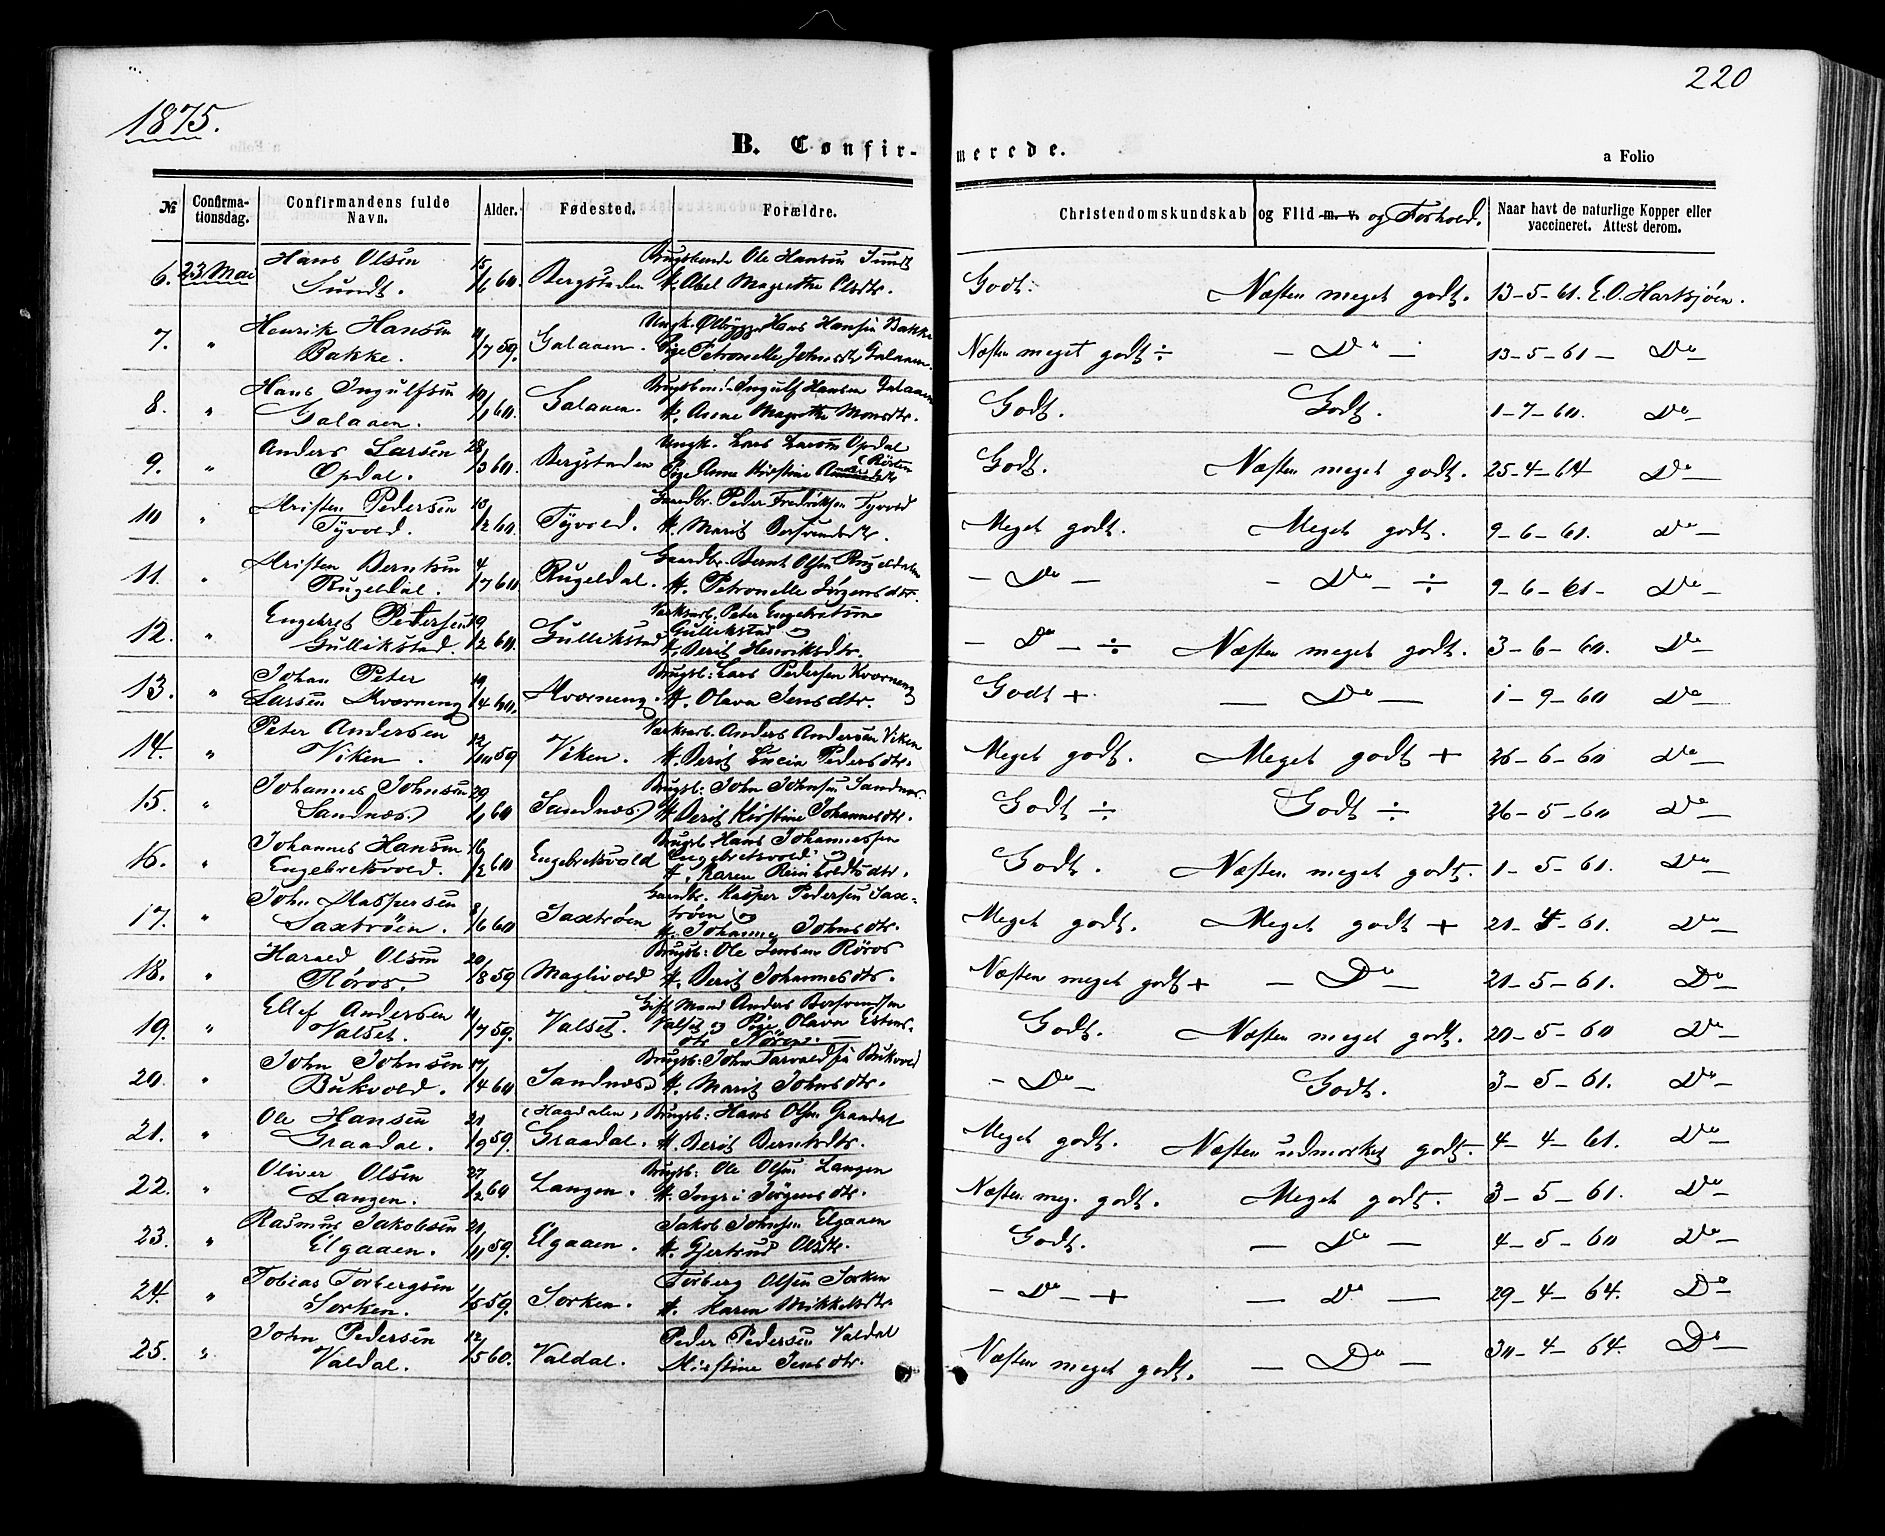 1875.
220
B. Confirmerede.
a Folio
№ Confirmationsdag. Confirmandens fulde Navn. Alder. Fødested. Forældre. Christendomskundskab og Flid m. v. og Forhold. Naar havt de naturlige Kopper eller vaccineret. Attest derom.
6. 23 Mai Hans Olsen Sundt. 15/6 60. Bergstaden Brugsbmd. Ole Hansen Sundt H. Abel Magrethe Olsdtr. Godt. Næsten meget godt. 13-5-61. E.O. Harksjöen.
7. " Henrik Hansen Bakke. 11/7 59. Galaaen. Ungk. Hans Hansen Bakke Pige Petronelle Johnsdtr. Galaaen. Næsten meget godt ÷ - Do - 13-5-61- Do
8. " Hans Ingulfsen Galaaen. 10/1 60. Galaaen. Ingulf Hansen Galaaen H. Anne Magrethe Monsdtr. Godt. Godt. 1-7-60. Do
9. " Anders Larsen Opdal. 28/3 60. Bergstaden Ungk. Lars Larsen Opdal Pige Anne Kirstine Godt. Næsten meget godt. 25-4-64 Do
10 " Kristen Pedersen Tyvold. 13/2 60. Tyvold. Gaardbr. Peder Fredriksen Tyvold H. Marit Bersvendsdtr. Meget godt. Meget godt. 9-6-61. Do
11. " Kristen Berntsen Rugeldal. 4/7 60 Rugeldal. Gaardbr. Bernt Olsen Rugeldalen H. Petronelle Jørgensdtr. - Do - - Do - ÷ 9-6-61- Do
12. " Engebret Pedersen Gullikstad. 19/2 60. Gullikstad Værksarb. Peter Engebretsen Gullikstad og H. Berit Henriksdtr. - Do - ÷ Næsten meget godt. 3-6-60. Do
13. " Johan Peter Larsen Kværneng 19/4 60. Kværneng. Brugsb: Lars Pedersen Kværneng H. Olava Jensdtr. Godt + - Do - 1-9-60 Do
14. " Peter Andersen Viken. 12/10 59 Viken. Værksarb. Anders Andersen Viken H. Berit Lucia Pedersdtr. Meget godt. Meget godt + 26-6-60 Do
15. " Johannes Johnsen Sandnæs. 29/1 60 Sandnæs. Brugsb: John Johnsen Sandnæs. H Berit Kirstine Johannesdtr. Godt ÷ Godt ÷ 26-5-60 Do
16. " Johannes Hansen Engebretsvold. 16/2 60 Engebretsvold Brugsb. Hans Johannessen Engebretsvold og H. Karen Reinholdtsdtr. Godt. Næsten meget godt. 1-5-61. Do
17. " John Kaspersen Saxtrøen. 8/6 60 Saxtrøen Gaardbr. Kasper Pedersen Saxtrøen og H. Johanne Johnsdtr. Meget godt. Meget godt + 21- -61. Do
18. " Harald Olsen Röros. 20/8 59. Maglivold Brugsb: Ole Jensen Röros H. Berit Johannesdtr. Næsten meget godt + - Do 21-5-61. Do
19. " Ellef Andersen Valset. 11/7 59. Valset. Gift Mand Anders Bersvendsen Valset og Pige Olava Estensdtr Noren. Godt. Næsten meget godt. 20-5-60 Do
20. " John Johnsen Bukvold. 17/4 60 Sandnæs Brugsb: John Tarvaldsen Bukvold H. Marit Johnsdtr. - Do - Godt. 3-5-61. Do
21. " Ole Hansen Graadal. 21/9 59. (Haadalen) Graadal. Brugsb: Hans Olsen Graadal H. Berit Berntsdtr. Meget godt. Næsten udmærket godt. 4-4-61. Do
22. " Oliver Olsen Langen. 27/2 60 Langen. Brugsb: Ole Olsen Langen H. Ingri Jörgensdtr. Næsten meg. godt. Meget godt. 3-5-61. Do
23. " Rasmus Jakobsen Elgaaen. 21/11 59. Elgaaen. Jakob Johnsen Elgaaen H. Gjertrud Olsdtr. Godt. - Do - 4-5-60 Do
24. " Tobias Torbergsen Sorken. 1/5 59. Sorken. Torberg Olsen Sorken H. Karen Mikkelsdtr - Do - + - Do - 29-4-64. Do
25. " John Pedersen Valdal. 12/5 60. Valdal. Peder Pedersen Valdal Kirstine Jensdtr. Næsten meget godt. - Do - 30-4-64. Do